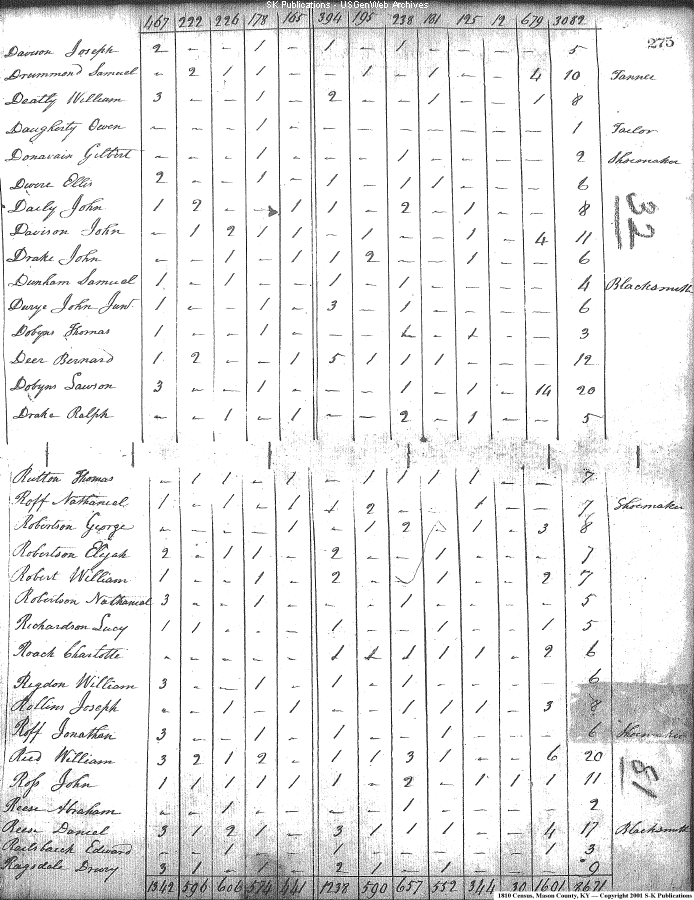 S-K Publications - USGenWeb Archives
467 222 226 178 165 394 195 238 181 125 12 679 3082
275
Davison Joseph 2 - - 1 - 1 - 1 - - - - 5
Drummond Samuel - 2 1 1 - - 1 - 1 - - 4 10 Tanner
Deatly William 3 - - 1 - 2 - - 1 - - 1 8
Daugherty Owen - - - 1 - - - - - - - - 1 Tailor
Donavain Gilbert - - - 1 - - - 1 - - - - 2 Shoemaker
Devore Ellis 2 - - 1 - 1 - 1 1 - - - 6
Daily John 1 2 - - 1 1 - 2 - 1 - - 8
32
Davison John - 1 2 1 1 - 1 - - 1 - 4 11
Drake John - - 1 - 1 1 2 - - 1 - - 6
Dunham Samuel 1 - 1 - - 1 - 1 - - - - 4 Blacksmith
Durye John Junr 1 - - 1 - 3 - 1 - - - - 6
Dobyns Thomas 1 - - 1 - - - 1 - 1 - - 3
Deer Bernard 1 2 - - 1 5 1 1 1 - - - 12
Dobyns Lawson 3 - - 1 - - - 1 - 1 - 14 20
Drake Ralph - - 1 - 1 - - 2 - 1 - - 5
Rutton Thomas - 1 1 - 1 - 1 1 1 1 - - 7
Roff Nathaniel 1 - 1 - 1 1 2 - - 1 - - 7 Shoemaker
Robertson George - - - - 1 - 1 2 - 1 - 3 8
Robertson Elijah 2 - 1 1 - 2 - - 1 - - - 7
Robert William 1 - - 1 - 2 - - 1 - - 2 7
Robertson Nathaniel 3 - - 1 - - - 1 - - - - 5
Richardson Lucy 1 1 - - - 1 - - 1 - - 1 5
Roach Charlotte - - - - - 1 1 1 1 1 - 2 6
Rigdon William 3 - - 1 - 1 - 1 - - - - 6
Rollins Joseph - - 1 - 1 - - 1 1 1 - 3 8
Roff Jonathan 3 - - 1 - 1 - - 1 - - - 6 Shoemaker
Reed William 3 2 1 2 - 1 1 3 1 - - 6 20
51
Ross John 1 1 1 1 1 1 - 2 - 1 1 1 11
Reese Abraham - - 1 - - - - 1 - - - - 2
Reese Daniel 3 1 2 1 - 3 1 1 1 - - 4 17 Blacksmith
Railsback Edward - - 1 - - 1 - - - - - 1 3
Ragsdale Drury 3 1 - 1 - 2 1 - 1 - - - 9
1342 596 606 574 441 1238 590 657 552 344 30 1601 8671
1810 Census, Mason County, KY — Copyright 2001 S-K Publications